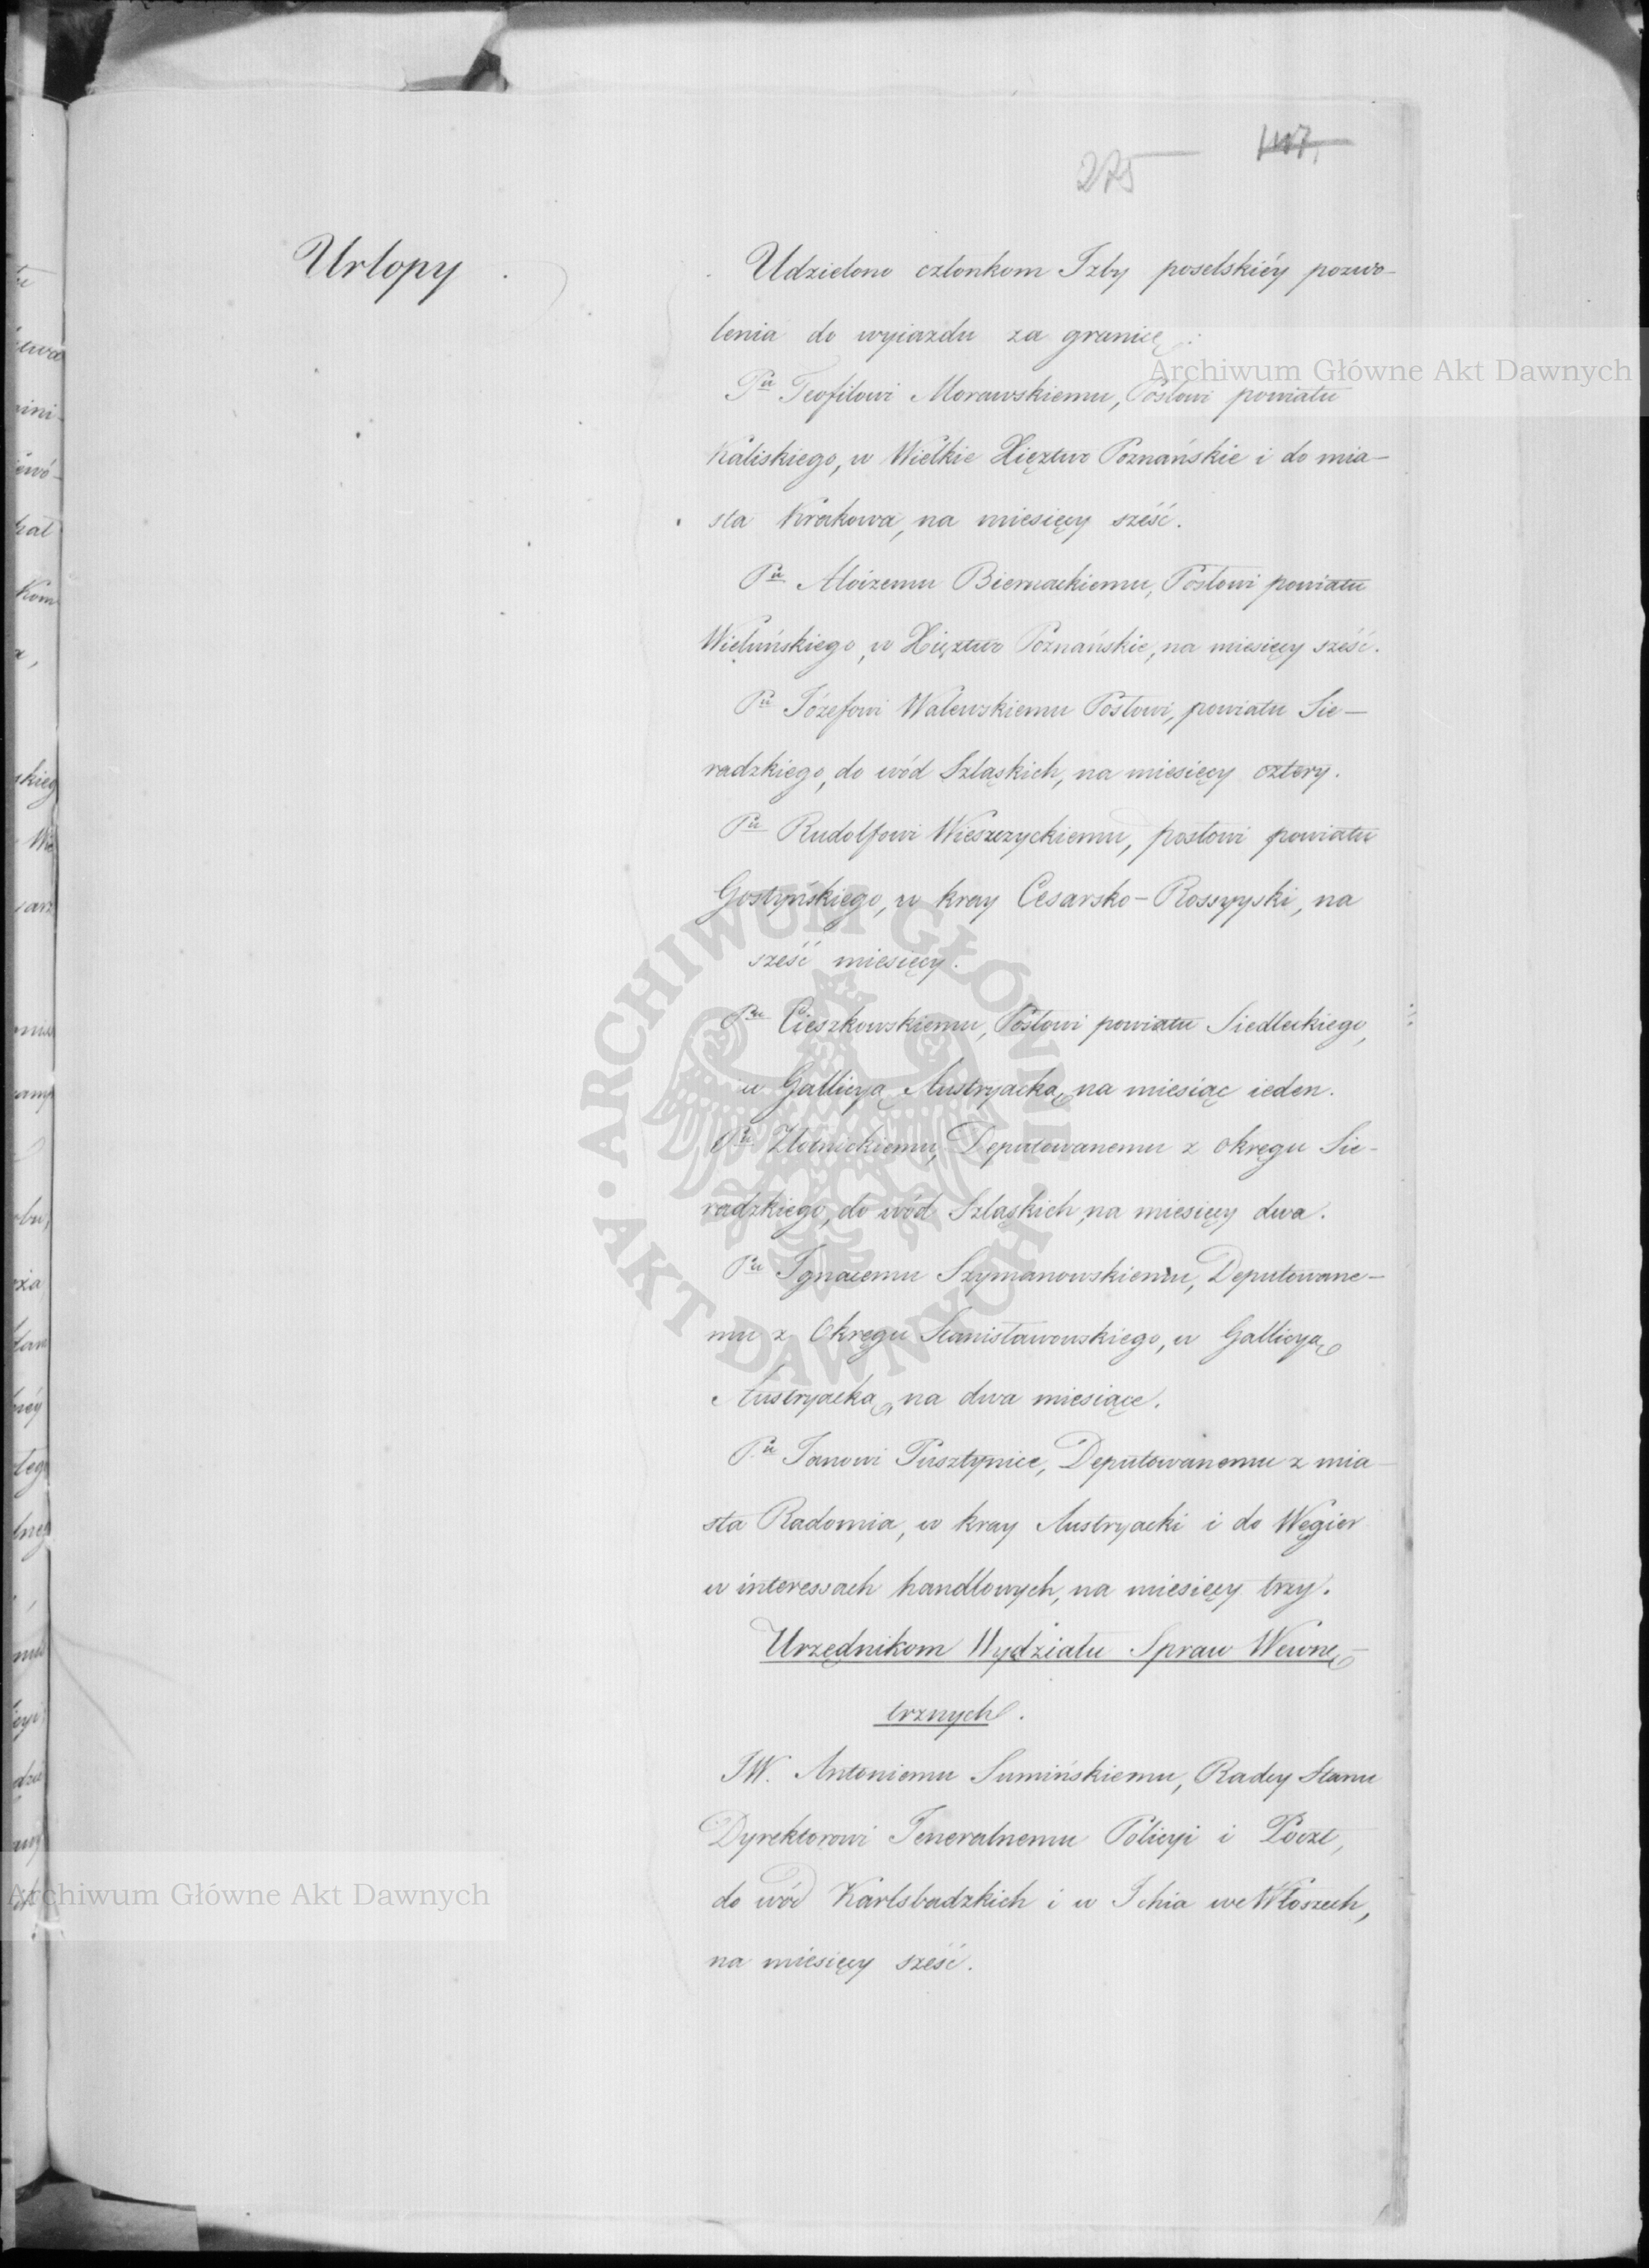 147,
275
Urlopy
Udzielono członkom Izby poselskiéy pozwo-
lenia do wyjazdu za granicę :
Archiwum Główne Akt Dawnych
Pu Teofilowi Morawskiemu, Posłowi powiatu
Kaliskiego, w Wielkie Xięztwo Poznańskie i do mia-
sta Krakowa, na miesięcy sześć.
Pu Aloizemu Biernackiemu, Posłowi powiatu
Wieluńskiego, w Xięztwo Poznańskie, na miesięcy sześć.
Pu Józefowi Walewskiemu Posłowi, powiatu Sie-
radzkiego, do wód Szląskich, na miesięcy cztery.
Pu Rudolfowi Wieszczyckiemu, posłowi powiatu
Gostyńskiego, w kray Cesarsko-Rossyyski, na
sześć miesięcy.
Pu Cieszkowskiemu, Posłowi powiatu Siedleckiego,
w Gallicyą Austryacką, na miesiąc ieden.
Pu Złotnickiemu, Deputowanemu z okręgu Sie-
radzkiego, do wód Szląskich, na miesięcy dwa.
Pu Ignacemu Szymanowskiemu, Deputowane-
mu z Okręgu Stanisławowskiego, w Gallicyą
Austryacką, na dwa miesiące.
Pu Janowi Pusztynice, Deputowanemu z mia-
sta Radomia, w kray Austryacki i do Węgier
w interessach handlowych, na miesięcy trzy.
Urzędnikom Wydziału Spraw Wewnę-
trznych.
JW. Antoniemu Sumińskiemu, Radcy Stanu
Dyrektorowi Jeneralnemu Policyi i Poczt,
do wód Karlsbadzkich i w Ischia we Włoszech,
na miesięcy sześć.
Archiwum Główne Akt Dawnych
ARCHIWUM GŁÓWNE · AKT DAWNYCH ·